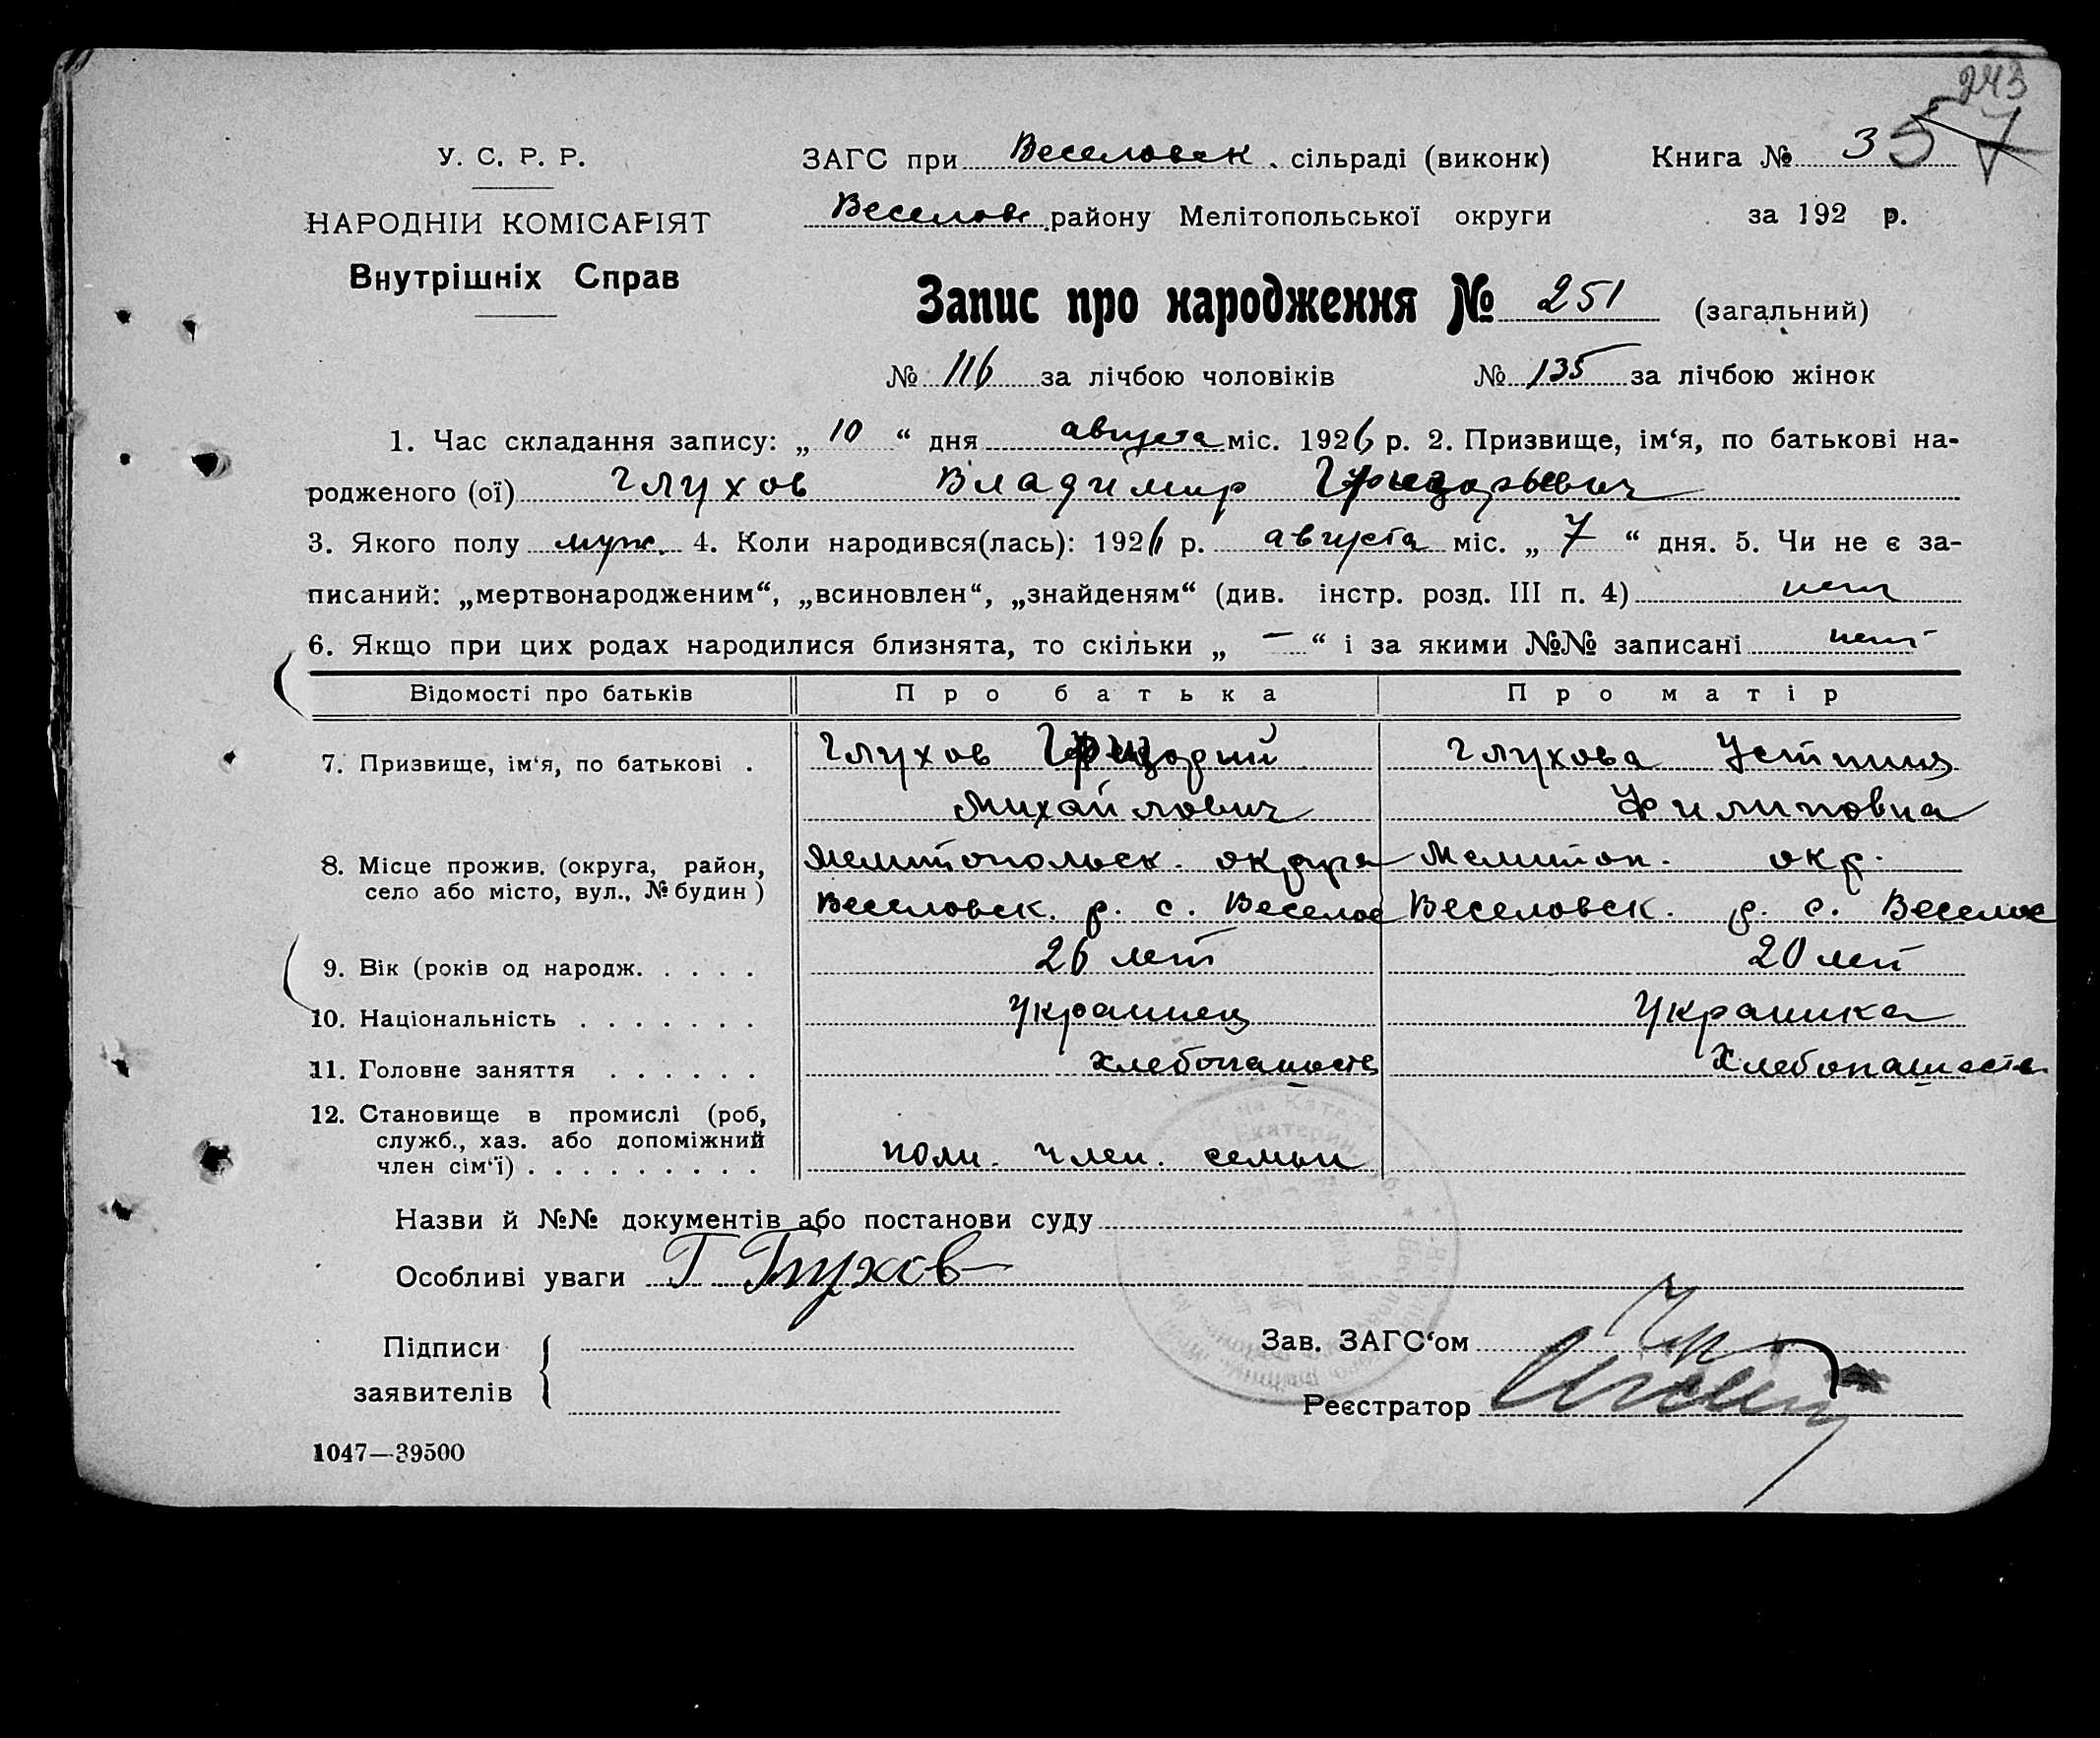 243
У. С. Р. Р.
НАРОДНІЙ КОМІСАРІЯТ
Внутрішніх Справ
ЗАГС при Веселовск. сільраді (виконк)
Книга № 35
Веселовс. району Мелітопольської округи
за 192 р.
Запис про народження № 251 (загальний)
№ 116 за лічбою чоловіків № 135 за лічбою жінок
1. Час складання запису: „ 10 “ дня августа міс. 1926 р. 2. Призвище, ім‘я, по батькові на-
родженого (ої) Глухов Владимир Григорьевич
3. Якого полу муж. 4. Коли народився(лась): 1926 р. августа міс. „ 7 “ дня. 5. Чи не є за-
писаний: „мертвонародженим“, „всиновлен“, „знайденям“ (див. інстр. розд. III п. 4) нет
6. Якщо при цих родах народилися близнята, то скільки „ — “ і за якими №№ записані нет
Відомості про батьків Про батька Про матір
7. Призвище, ім‘я, по батькові . Глухов Григорий Глухова Устиния
Михайлович Филиповна
8. Місце прожив. (округа, район, Мелитопольск. округа Мелитоп. окр.
село або місто, вул., № будин ) Веселовск. р. с. Веселое Веселовск. р. с. Веселое
9. Вік (років од народж. . . . . 26 лет 20 лет
10. Національність . . . . . . . Украинец Украинка
11. Головне заняття . . . . . . Хлебопашест Хлебопашеств.
12. Становище в промислі (роб,
служб., хаз. або допоміжний
член сім‘ї) . . . . . . . . . член. семьи
Назви й №№ документів або постанови суду
Особливі уваги Г Глухов
Підписи
заявителів
Зав. ЗАГС‘ом
Реєстратор
1047—39500